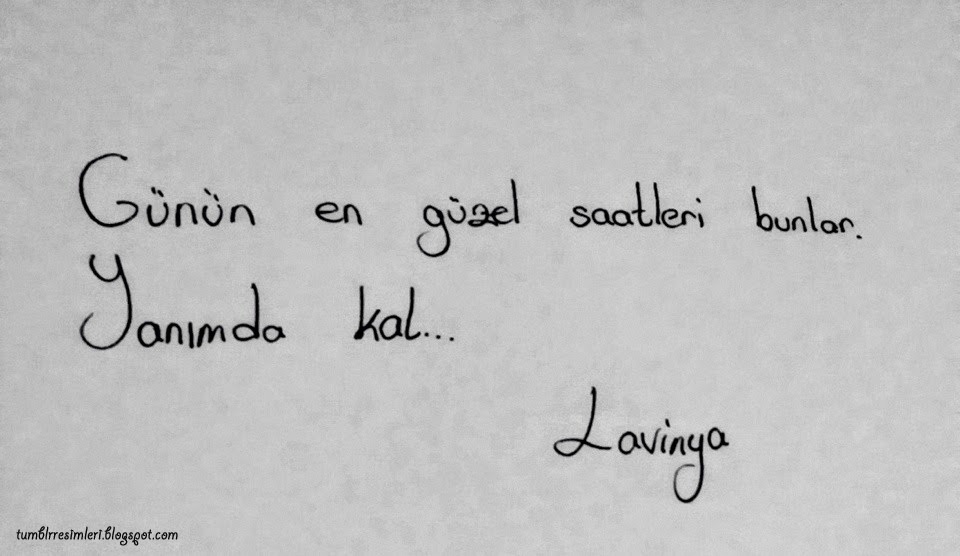 Günün en güzel saatleri bunlar.
Yanımda kal...
Lavinya
tumblrresimleri.blogspot.com